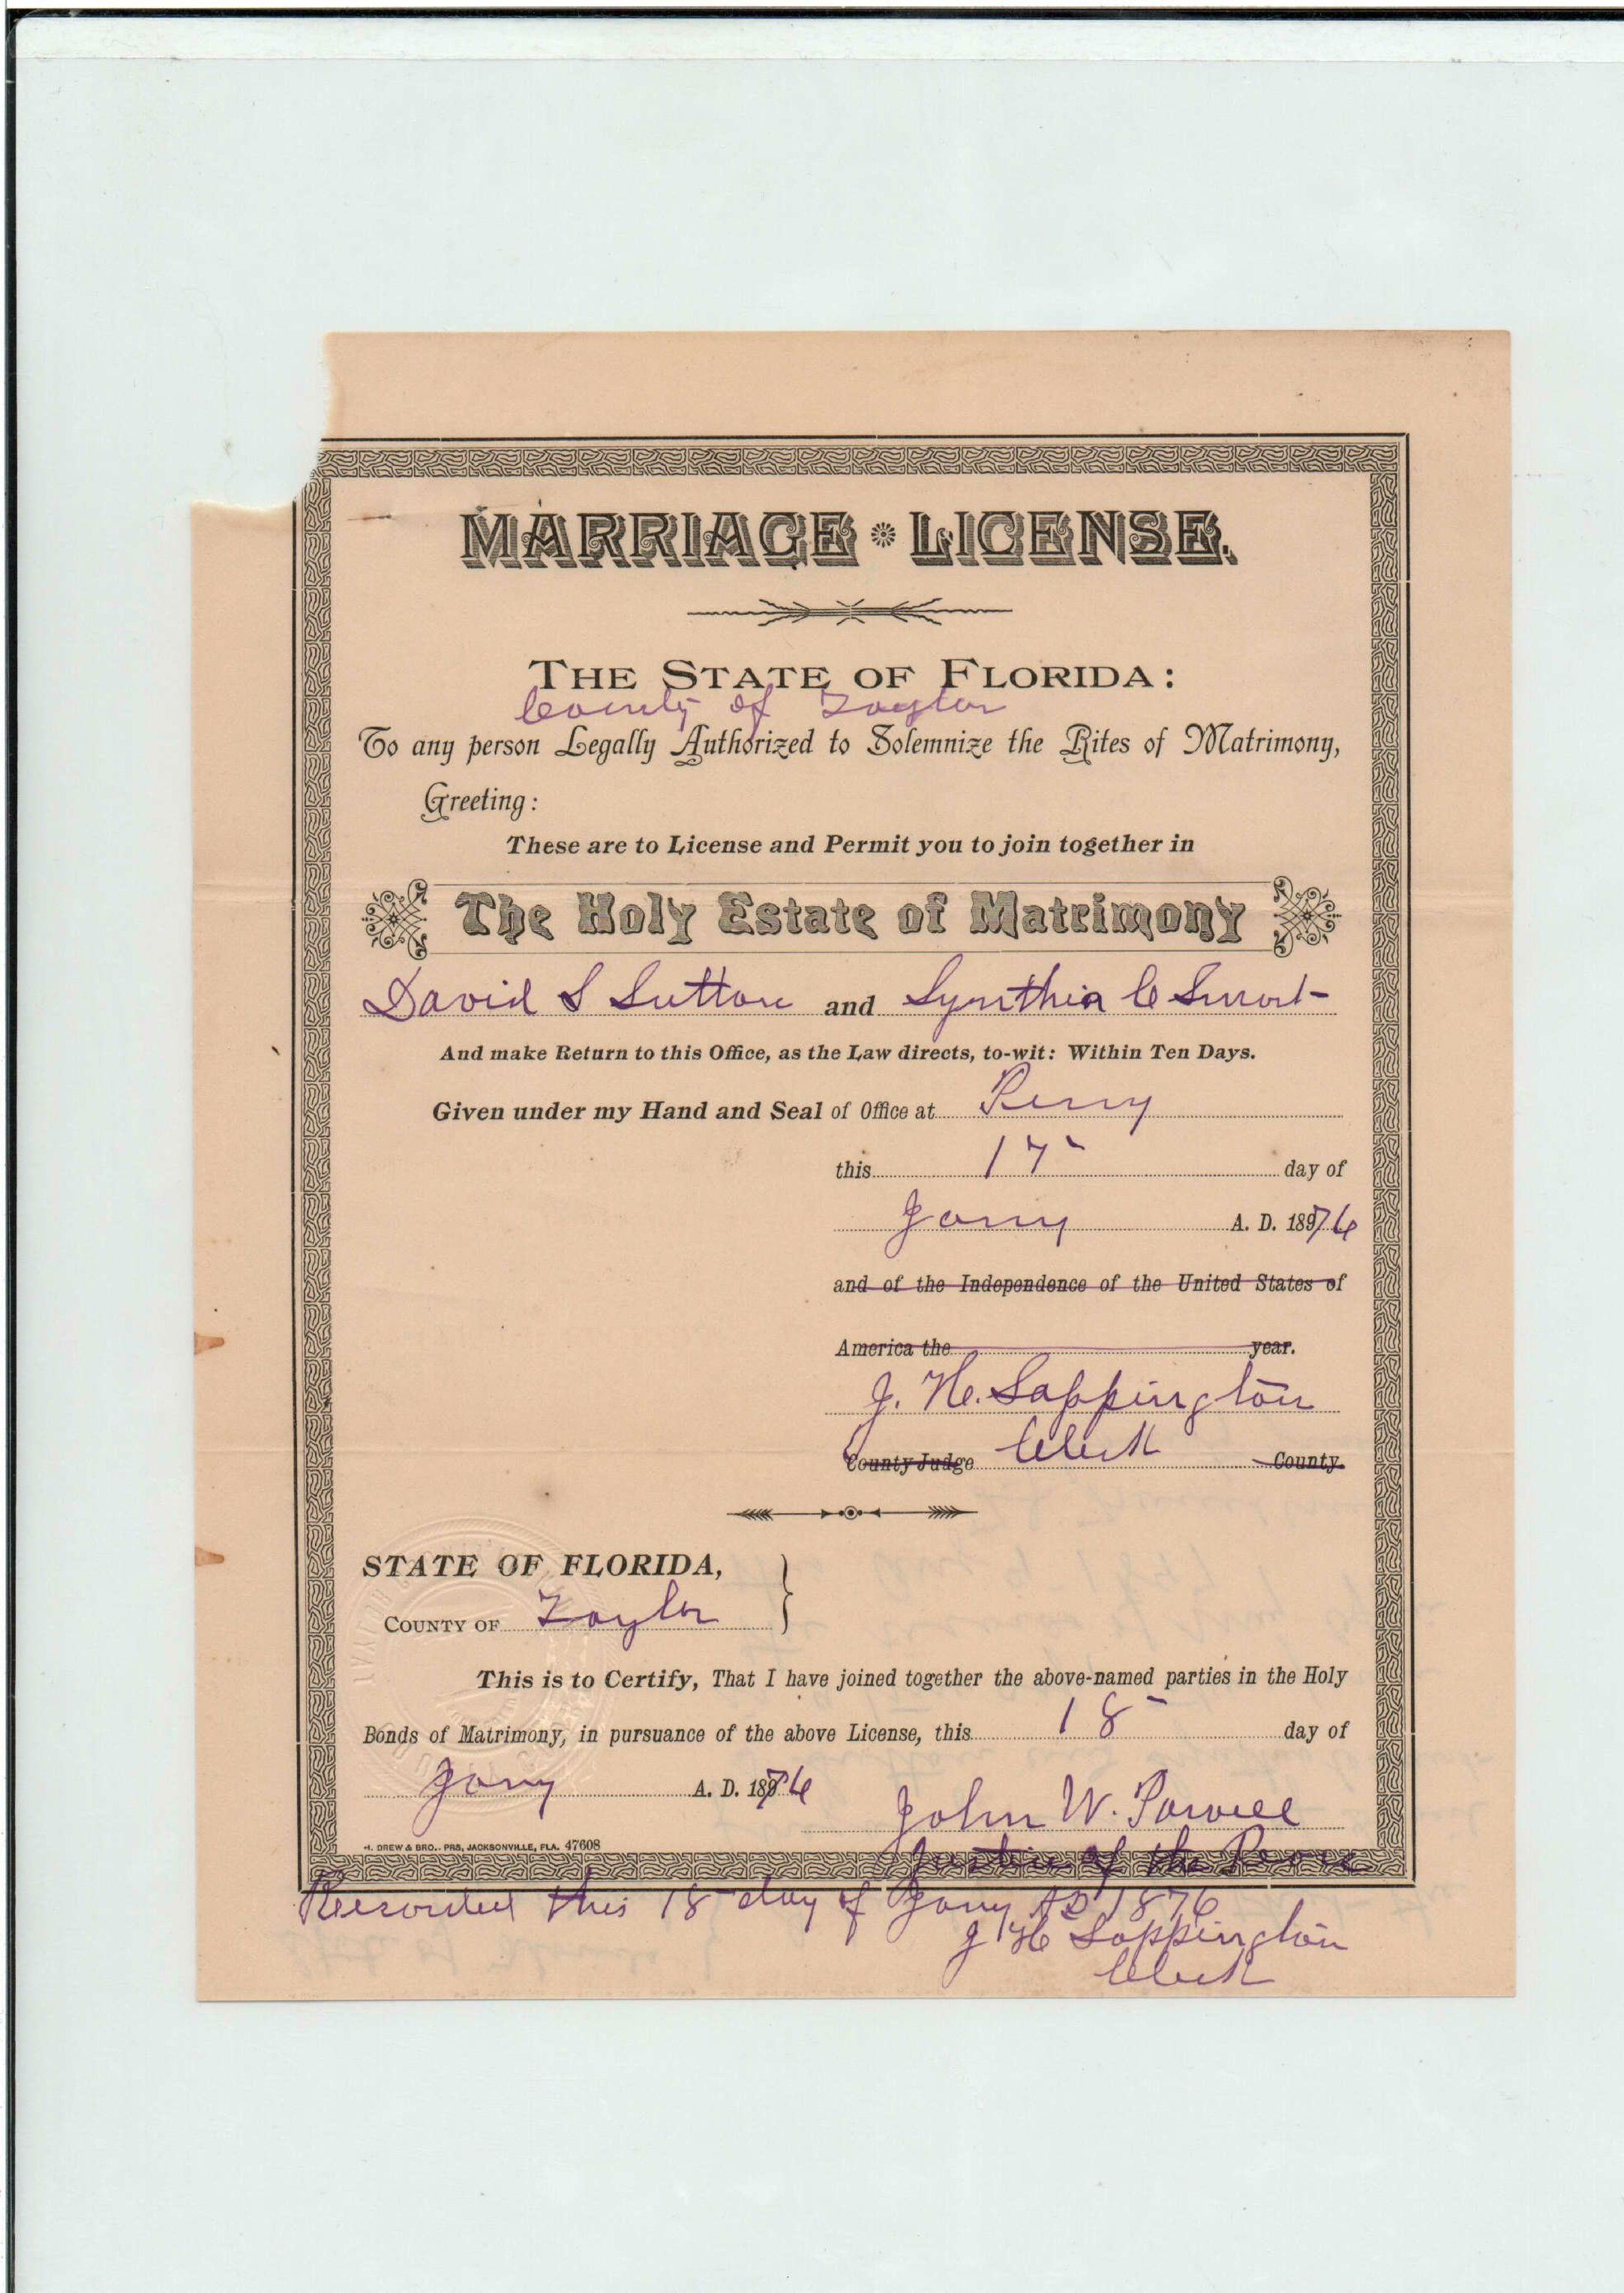 MARRIAGE LICENSE.
THE STATE OF FLORIDA:
County of Taylor
To any person Legally Authorized to Solemnize the Rites of Matrimony,
Greeting:
These are to License and Permit you to join together in
The Holy Estate of Matrimony
David S Sutton and Synthia C Smart
And make Return to this Office, as the Law directs, to-wit: Within Ten Days.
Given under my Hand and Seal of Office at Perry
this 17 day of
Jany A. D. 1876
and of the Independence of the United States of
America the year.
J. H. Sappington
County Judge Clerk County.
STATE OF FLORIDA,
COUNTY OF Taylor
This is to Certify, That I have joined together the above-named parties in the Holy
Bonds of Matrimony, in pursuance of the above License, this 18 day of
Jany A. D. 1876
John W. Powell
H. DREW & BRO., PRS, JACKSONVILLE, FLA. 47608
Justice of the Peace
Recorded this 18 day of Jany AD 1876
J H Sappington
Clerk